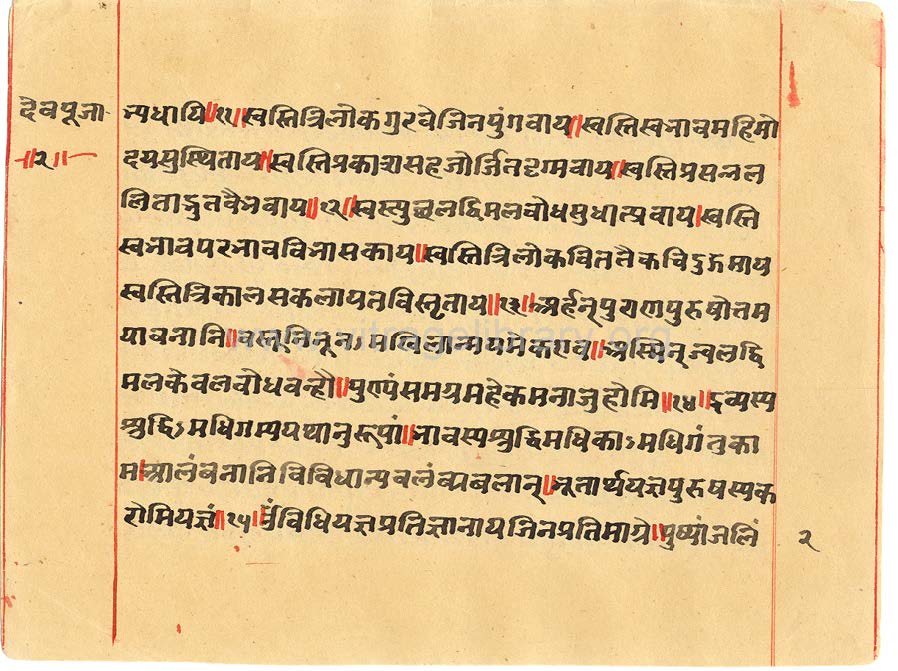 देवपूजा
॥२॥
न्यधायि॥११॥स्वस्तित्रिलोकगुरवेजिनपुंगवाय॥स्वस्तिस्वभावमहिमो
दयसुस्थिताय॥स्वस्तिप्रकाशसहजोर्जितदृग्मयाय॥स्वस्तिप्रसन्नल
लिताद्भुतवैभवाय॥१२॥स्वस्त्युच्छलद्विमलबोधसुधाप्लवाय॥स्वस्ति
स्वभावपरभावविभासकाय॥स्वस्तित्रिलोकविततैकचिदुद्गमाय
स्वस्तित्रिकालसकलायतविस्तृताय॥१३॥अर्हन्पुराणपुरुषोत्तम
पावनानि॥वस्तूनिनूनंमखिलान्मयमेकएव॥अस्मिन्ज्वलद्वि
मलकेवलबोधवन्हौ॥पुण्यंसमग्रमहेकमनाजुहोमि॥१४॥द्रव्यस्य
श्रुद्धिऽमधिगम्ययथानुरूपां॥भावस्यश्रुद्धिमधिकाऽमधिगंतुका
मःआलंबनानिविविधान्यवलंब्यबलान्॥भूतार्थयज्ञपुरुषस्यक
रोमियज्ञं॥१५॥विधियज्ञप्रतिज्ञानायजिनप्रतिमाग्रे॥पुष्पांजलिं
२
www.vitragelibrary.org